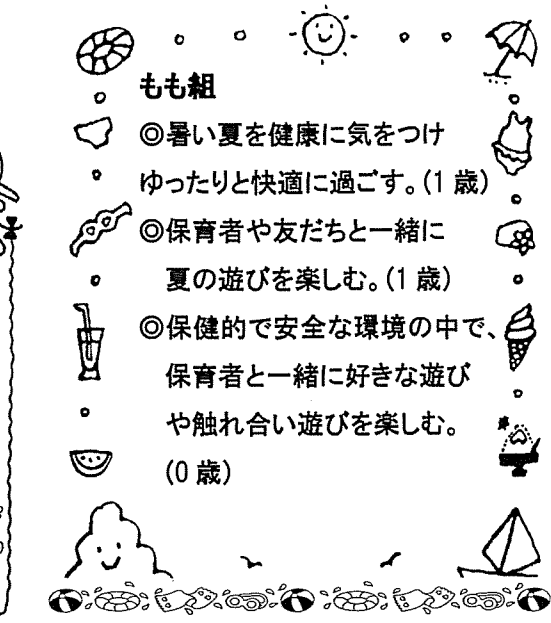 もも組
◎暑い夏を健康に気をつけ
ゆったりと快適に過ごす。(1歳)
◎保育者や友だちと一緒に
夏の遊びを楽しむ。(1歳)
◎保健的で安全な環境の中で、
保育者と一緒に好きな遊び
や触れ合い遊びを楽しむ。
(0歳)